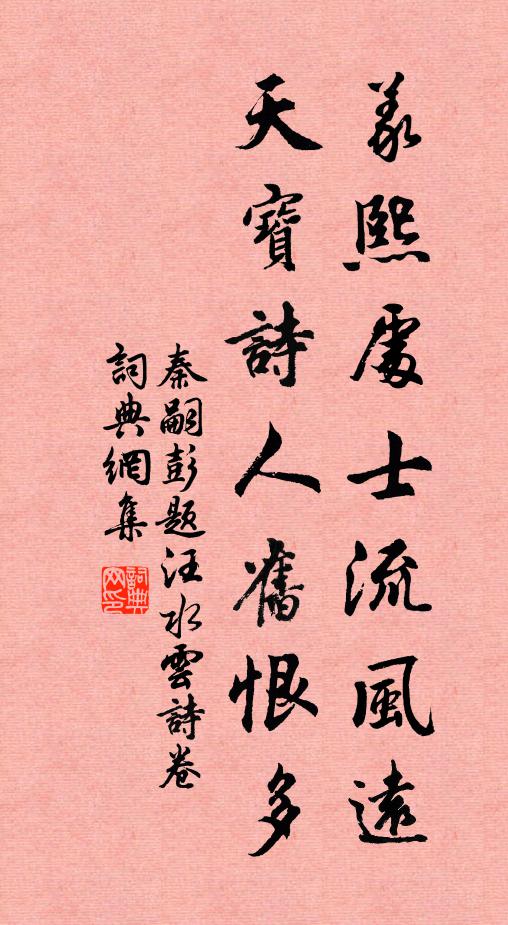 義熙處士流風遠
天寶詩人舊恨多
秦嗣彭題汪水雲詩卷
詞典網集
詞典网印